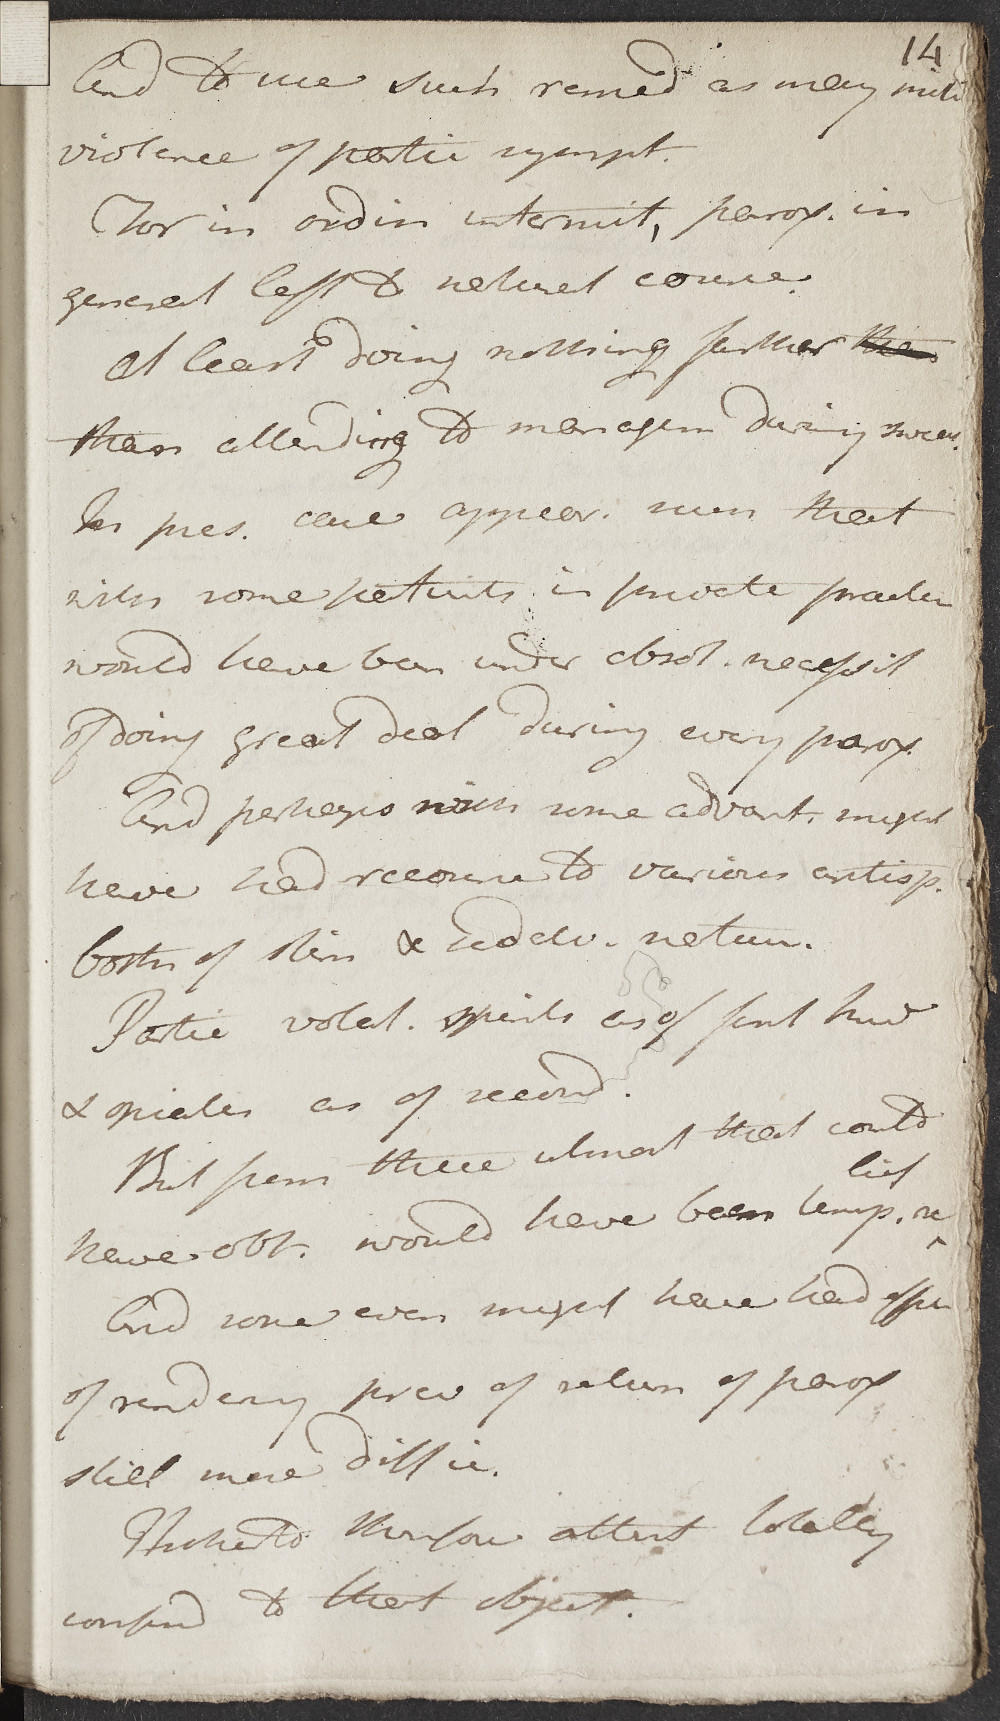 14
And to use such remed as may miti
violence of partic sympt.
Nor in ordin intermit, parox. in
general left to natural course.
At least doing nothing further than
than attending to managem during swea.
In pres. case appear. such that
with some patients in private practic
would have been under absol. necessit
of doing great deal during every parox.
And perhaps with some advant. might
have had recourse to various antisp.
both of stim & sedativ. natur.
Partic volat. spirits as of first kind
& opiates as of second.
But from these utmost that could
have obt. would have been temp. re^lief
And some even might have had effec
of rendering prev of return of parox
still more diffic.
Hitherto therefore attent totally
confind to that object.